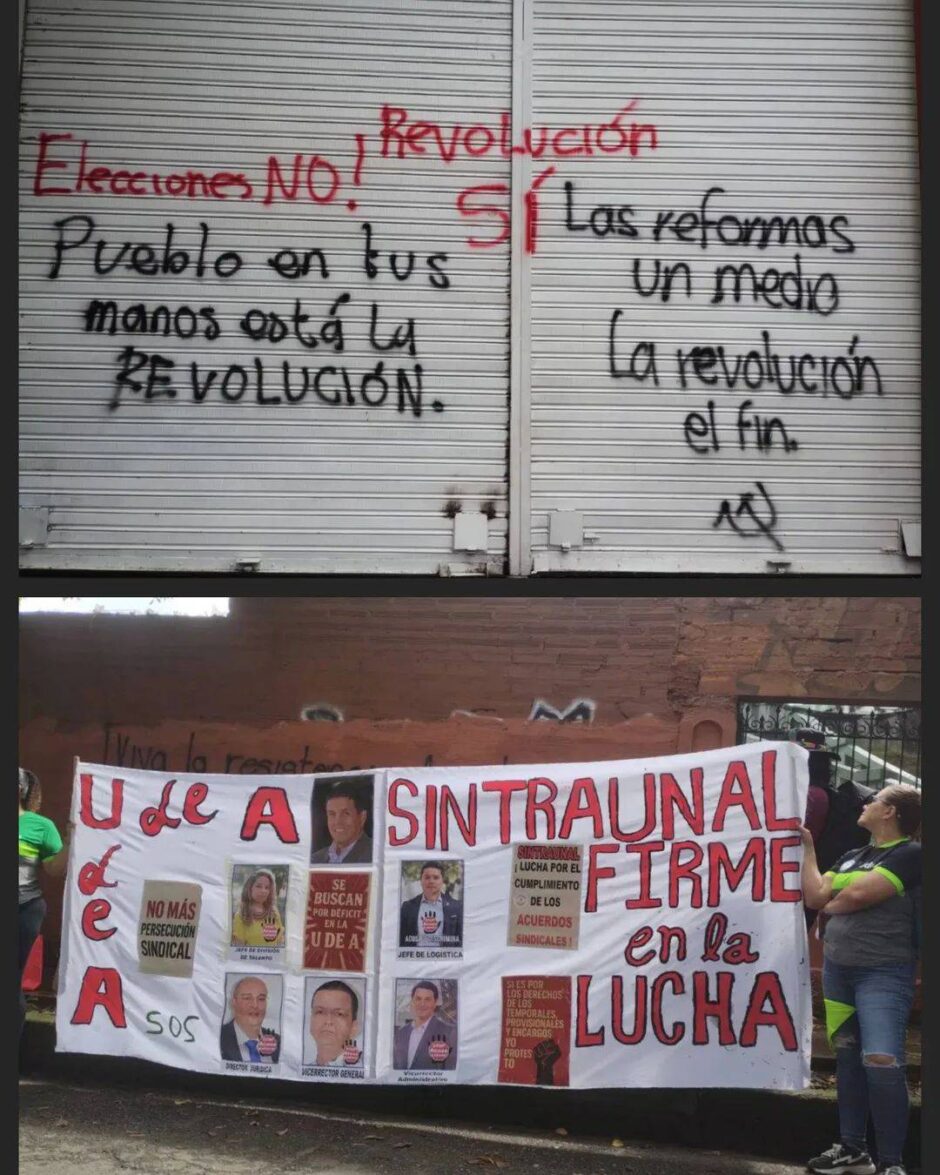 Elecciones NO!
Revolución
SÍ
Pueblo en tus
manos está la
REVOLUCIÓN.
Las reformas
un medio
La revolución
el fin.
¡Viva la resistencia
U de A
U
de
A
SOS
NO MÁS
PERSECUCIÓN
SINDICAL
JEFE DE DIVISIÓN
DE TALENTO
SE
BUSCAN
POR DÉFICIT
EN LA
U DE A
DIRECTOR JURÍDICA
VICERRECTOR GENERAL
JEFE DE LOGÍSTICA
Vicerrector
Administrativo
SINTRAUNAL
¡ LUCHA POR EL
CUMPLIMIENTO
DE LOS
ACUERDOS
SINDICALES !
SI ES POR
LOS DERECHOS
DE LOS
TEMPORALES,
PROVISIONALES
Y ENCARGOS
YO
PROTES
TO
SINTRAUNAL
FIRME
en la
LUCHA